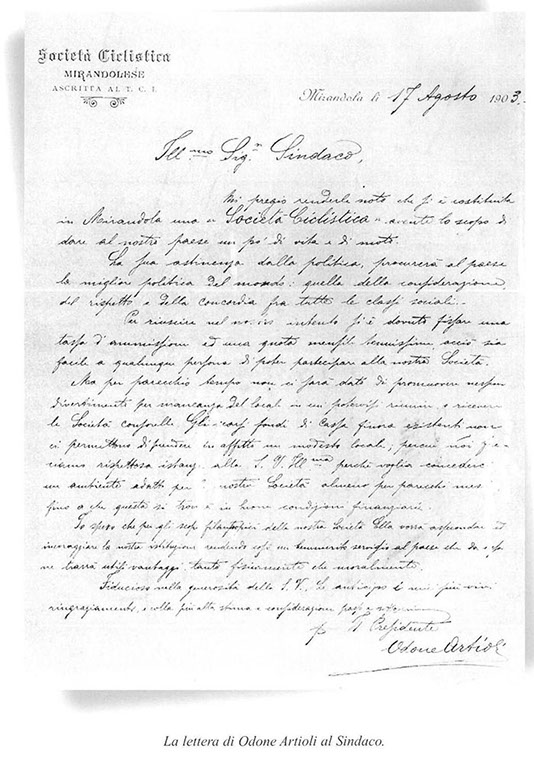 Società Ciclistica
MIRANDOLESE
ASCRITTA AL T. C. I.
Mirandola li 17 Agosto 1903.
Ill.mo Sig.r Sindaco,
Mi pregio renderle noto che si è costituita
in Mirandola una « Società Ciclistica » avente lo scopo di
dare al nostro paese un po' di vita e di moto.
La sua astinenza dalla politica, procurerà al paese
la migliore politica del mondo: quella della considerazione,
del rispetto e della concordia fra tutte le classi sociali.
Per riuscire nel nostro intento si è dovuto fissare una
tassa d'ammissione ed una quota mensile tenuissima acciò sia
facile a qualunque persona di poter partecipare alla nostra Società.
Ma per parecchio tempo non ci sarà dato di promuovere nessun
divertimento per mancanza del locale in cui potervisi riunire, o ricevere
le Società consorelle. Gli scarsi fondi di Cassa finora esistenti non
ci permettono di prendere in affitto un modesto locale, perciò noi
rispettosa istanza alla S. V. Ill.ma perchè voglia concederci
un ambiente adatto per la nostra Società almeno per parecchi mesi
fino a che questa si trovi in buone condizioni finanziarie.
Io spero che per gli scopi filantropici della nostra Società Ella vorrà assecondare ed
incoraggiare la nostra istituzione rendendo così un benemerito servigio al paese che da essa
ne trarrà utili vantaggi tanto fisicamente che moralmente.
Fiducioso nella generosità della S. V., Le anticipo i miei più vivi
ringraziamenti, e colla più alta stima e considerazione passo a
p. Il Presidente
Odone Artioli
La lettera di Odone Artioli al Sindaco.